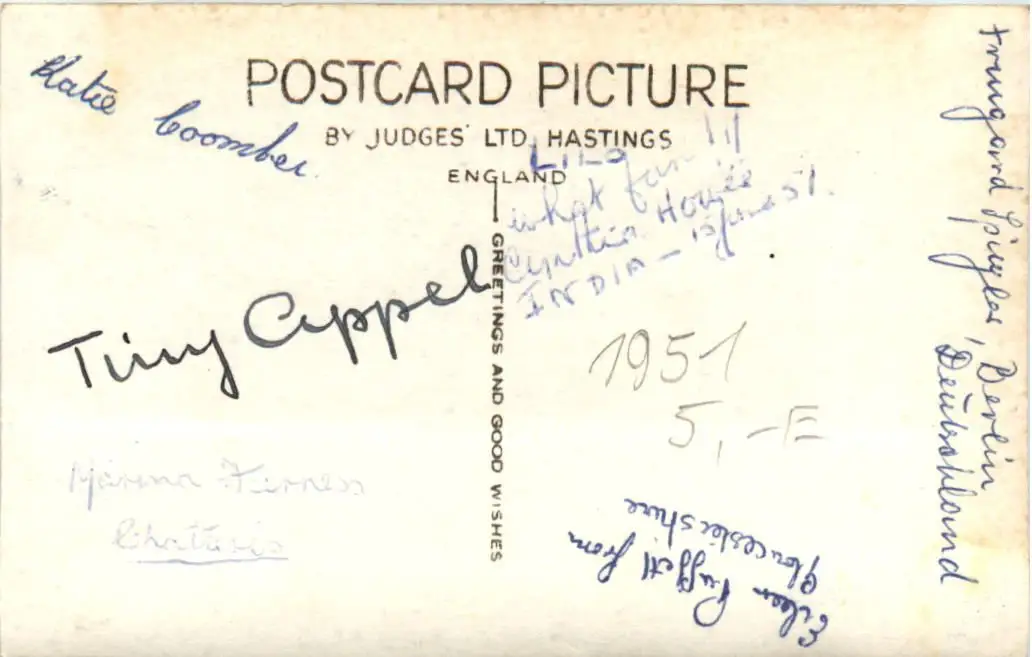 Katie Coomber.
POSTCARD PICTURE
BY JUDGES' LTD, HASTINGS
ENGLAND
GREETINGS AND GOOD WISHES
LILO
what fun !!!
Cynthia Howie
INDIA - 15 June 51.
Tiny Appel
1951
5,-E
Marina
Chatteris
Eileen Puffett from
Gloucestershire
Irmgard Spingler, Berlin
Deutschland